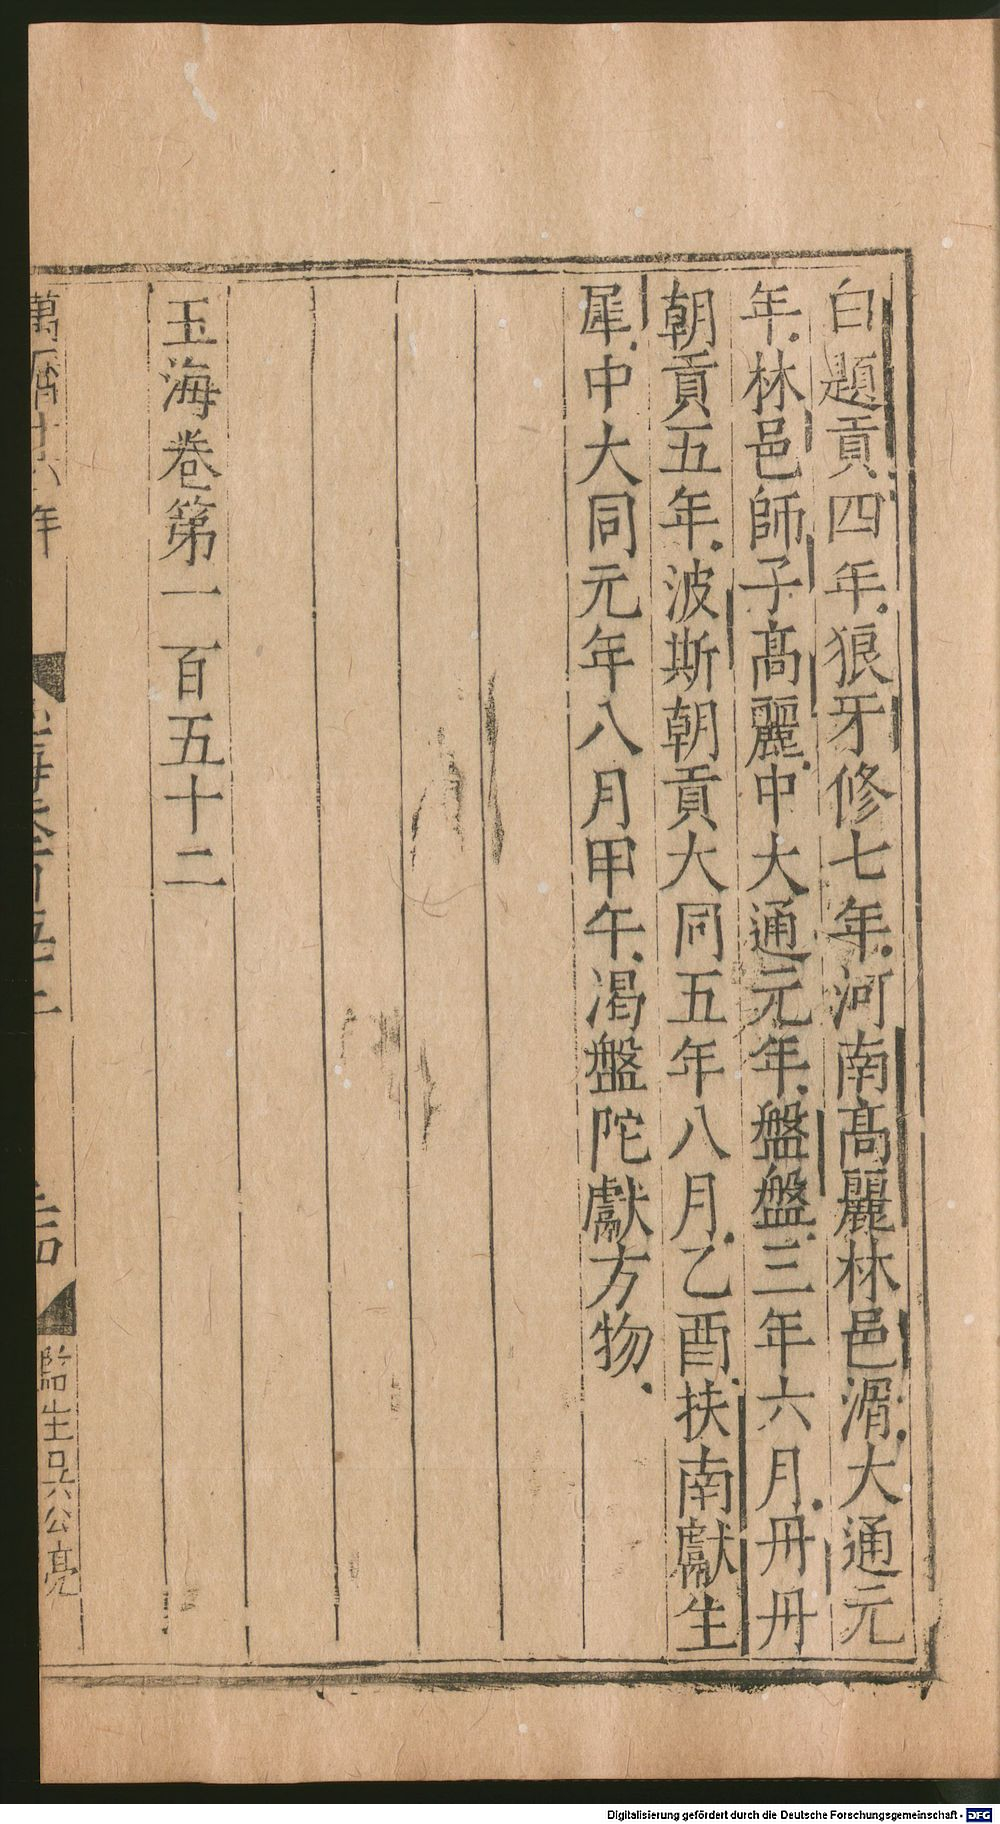 白題貢四年狼牙修七年河南髙麗林邑滑大通元
年林邑師子髙麗中大通元年盤盤三年六月丹丹
朝貢五年波斯朝貢大同五年八月乙酉扶南獻生
犀中大同元年八月甲午渴盤陀獻方物
玉海卷第一百五十二
萬曆十六年
監生吳公亮
Digitalisierung gefördert durch die Deutsche Forschungsgemeinschaft - DFG